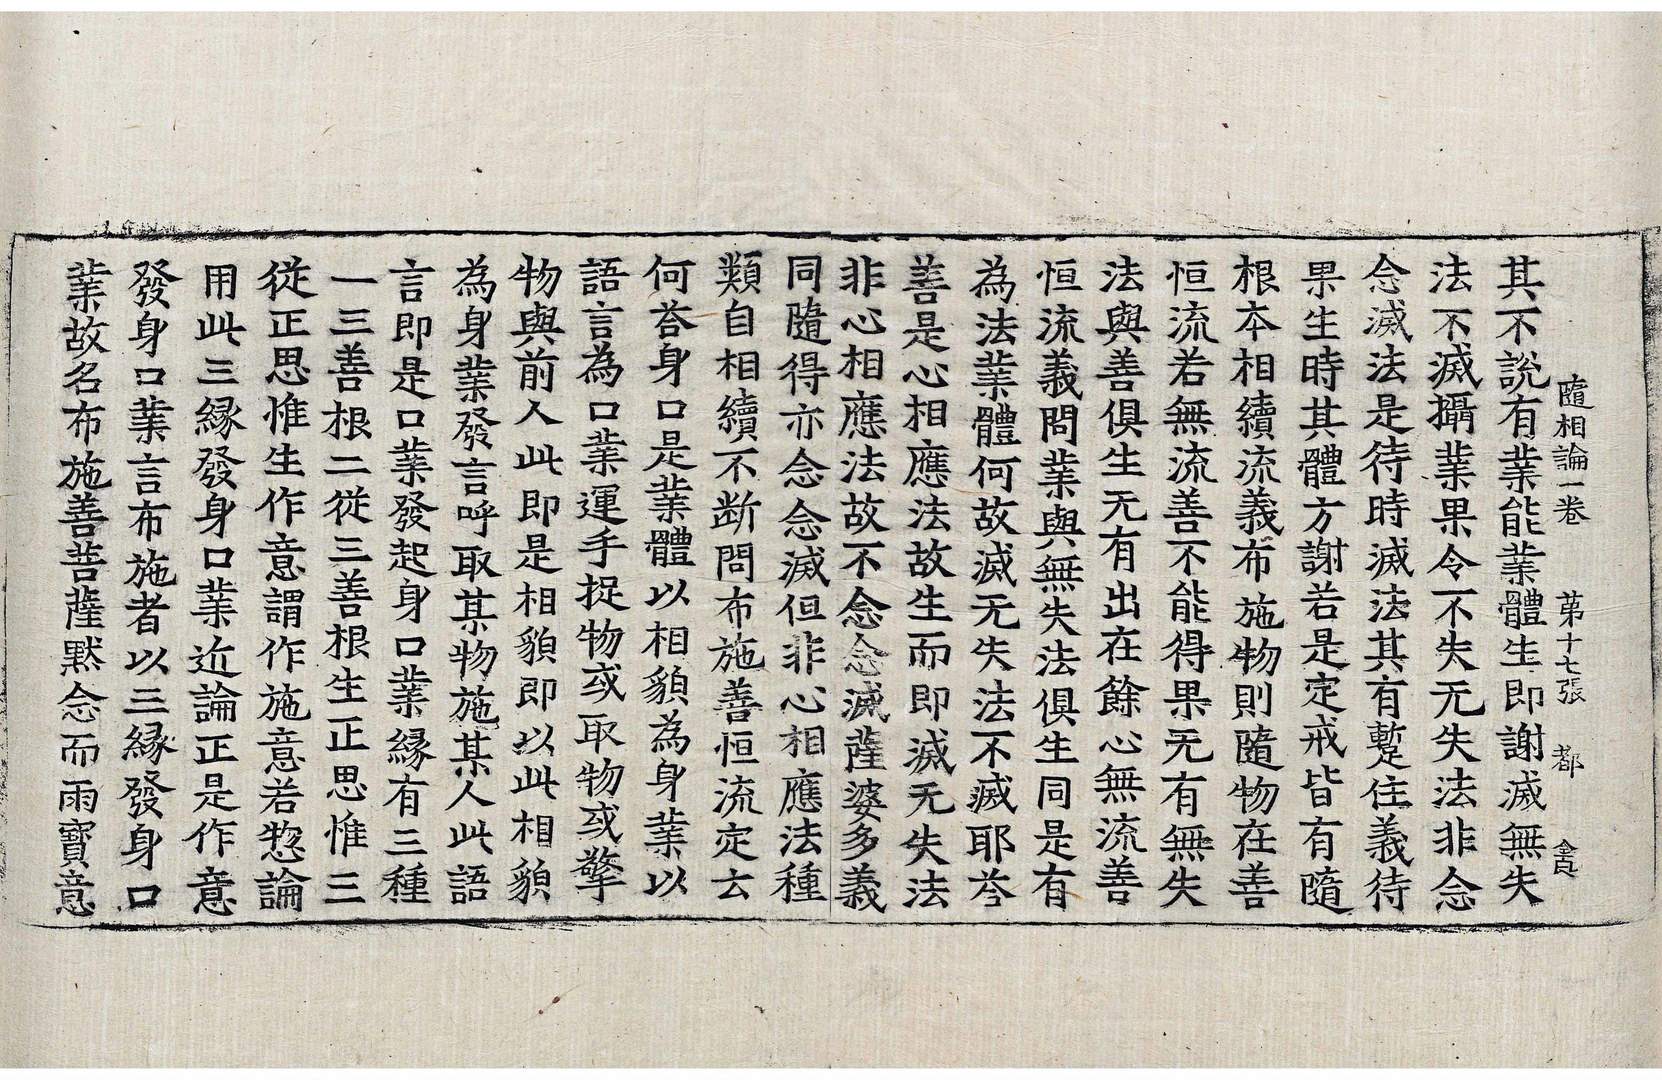 隨相論一卷 第十七張 都 食
其不說有業能業體生即謝滅無失
法不滅攝業果令不失无失法非念
念滅法是待時滅法其有蹔住義待
果生時其體方謝若是定戒皆有隨
根本相續流義布施物則隨物在善
恒流若無流善不能得果无有無失
法與善俱生无有出在餘心無流善
恒流義問業與無失法俱生同是有
為法業體何故滅无失法不滅耶荅
善是心相應法故生而即滅无失法
非心相應法故不念念滅薩婆多義
同隨得亦念念滅但非心相應法種
類自相續不断問布施善恒流定云
何荅身口是業體以相貌為身業以
語言為口業運手捉物或取物或擎
物與前人此即是相貌即以此相貌
為身業發言呼取某物施某人此語
言即是口業發起身口業縁有三種
一三善根二從三善根生正思惟三
從正思惟生作意謂作施意若惣論
用此三縁發身口業近論正是作意
發身口業言布施者以三縁發身口
業故名布施善菩薩默念而雨寶意